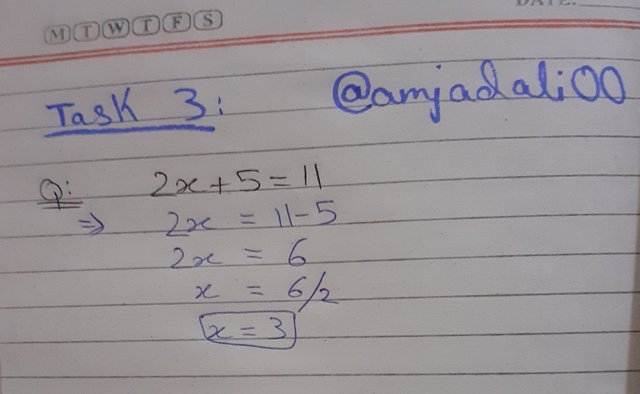 M T W T F S
DATE:
Task 3: @amjadali00
Q: 2x+5=11
⇒ 2x = 11-5
2x = 6
x = 6/2
x = 3